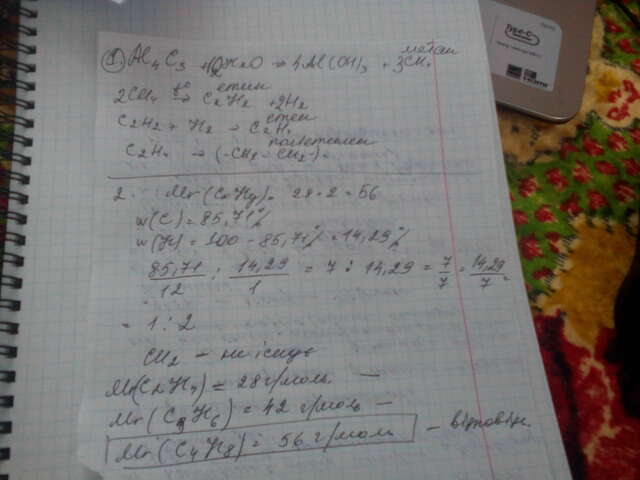 1) Al₄C₃ + 12H₂O → 4Al(OH)₃ + 3CH₄ метан
2CH₄ t° → C₂H₂ + 3H₂ етин
C₂H₂ + H₂ → C₂H₄ етен
C₂H₄ → (-CH₂-CH₂-)ₙ поліетилен
2. Mr(CxHy) = 28·2 = 56
w(C) = 85,71%
w(H) = 100 - 85,71% = 14,29%
85,71/12 : 14,29/1 = 7 : 14,29 = 7/7 = 14,29/7 =
= 1 : 2
CH₂ - не існує
Mr(C₂H₄) = 28 г/моль —
Mr(C₃H₆) = 42 г/моль —
Mr(C₄H₈) = 56 г/моль — відповідь.
Type-C